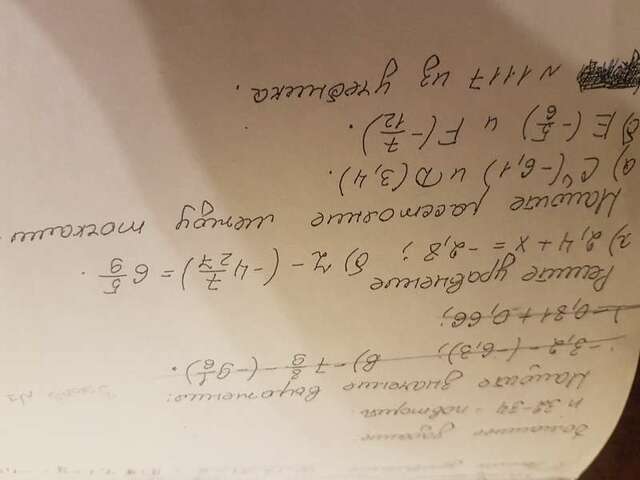 Домашнее задание
п 32-34 - повторить.
Найдите значение выражения:
-3,2 - (-6,3); в) -7 8/9 - (-9 1/6).
) -0,81 + 0,66;
Решите уравнение
а) 2,4 + x = -2,8; б) Z - (-4 7/27) = 6 5/9.
Найдите расстояние между точками
а) C (-6,1) и D (3,4).
б) E (-5/6) и F (-7/12).
№ 1117 из учебника.